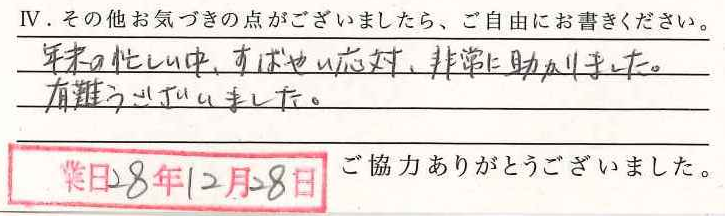 Ⅳ．その他お気づきの点がございましたら、ご自由にお書きください。
年末の忙しい中、すばやい応対、非常に助かりました。
有難うございました。
業日28年12月28日
ご協力ありがとうございました。